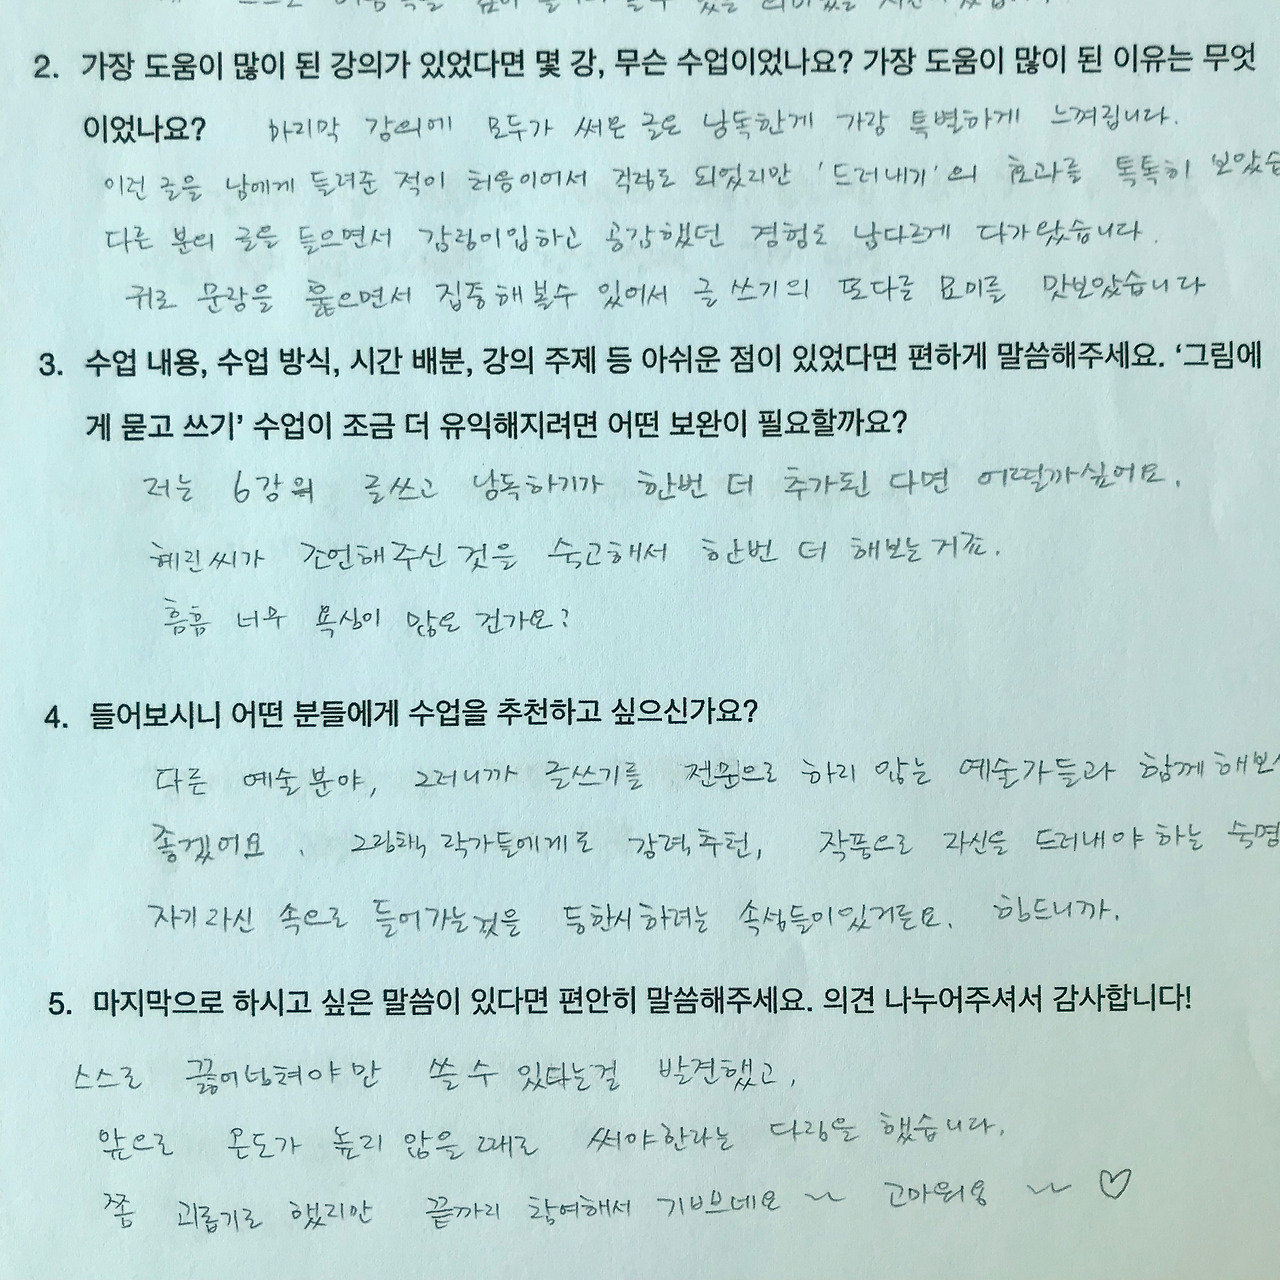 2. 가장 도움이 많이 된 강의가 있었다면 몇 강, 무슨 수업이었나요? 가장 도움이 많이 된 이유는 무엇
이었나요? 마지막 강의에 모두가 써온 글을 낭독한게 가장 특별하게 느껴집니다.
이런 글을 남에게 들려준 적이 처음이어서 걱정도 되었지만 '드러내기'의 효과를 톡톡히 보았습
다른 분의 글을 들으면서 감정이입하고 공감했던 경험도 남다르게 다가왔습니다.
귀로 문장을 훑으면서 집중해볼수 있어서 글쓰기의 또다른 묘미를 맛보았습니다
3. 수업 내용, 수업 방식, 시간 배분, 강의 주제 등 아쉬운 점이 있었다면 편하게 말씀해주세요. ‘그림에
게 묻고 쓰기’ 수업이 조금 더 유익해지려면 어떤 보완이 필요할까요?
저는 6강의 글쓰고 낭독하기가 한번 더 추가된다면 어떨까싶어요.
혜린씨가 조언해주신 것을 숙고해서 한번 더 해보는거죠.
흠흠 너무 욕심이 많은 건가요?
4. 들어보시니 어떤 분들에게 수업을 추천하고 싶으신가요?
다른 예술분야, 그러니까 글쓰기를 전문으로 하지 않는 예술가들과 함께해보
좋겠어요. 그림책 작가들에게도 강력추천, 작품으로 자신을 드러내야하는 숙명
자기자신 속으로 들어가는것을 등한시하려는 속성들이있거든요. 힘드니까.
5. 마지막으로 하시고 싶은 말씀이 있다면 편안히 말씀해주세요. 의견 나누어주셔서 감사합니다!
스스로 끓어넘쳐야만 쓸 수 있다는걸 발견했고,
앞으로 온도가 높지 않을때도 써야한다는 다짐을 했습니다.
쫌 괴롭기도 했지만 끝까지 참여해서 기쁘네요 ~ 고마워용 ~ ♡